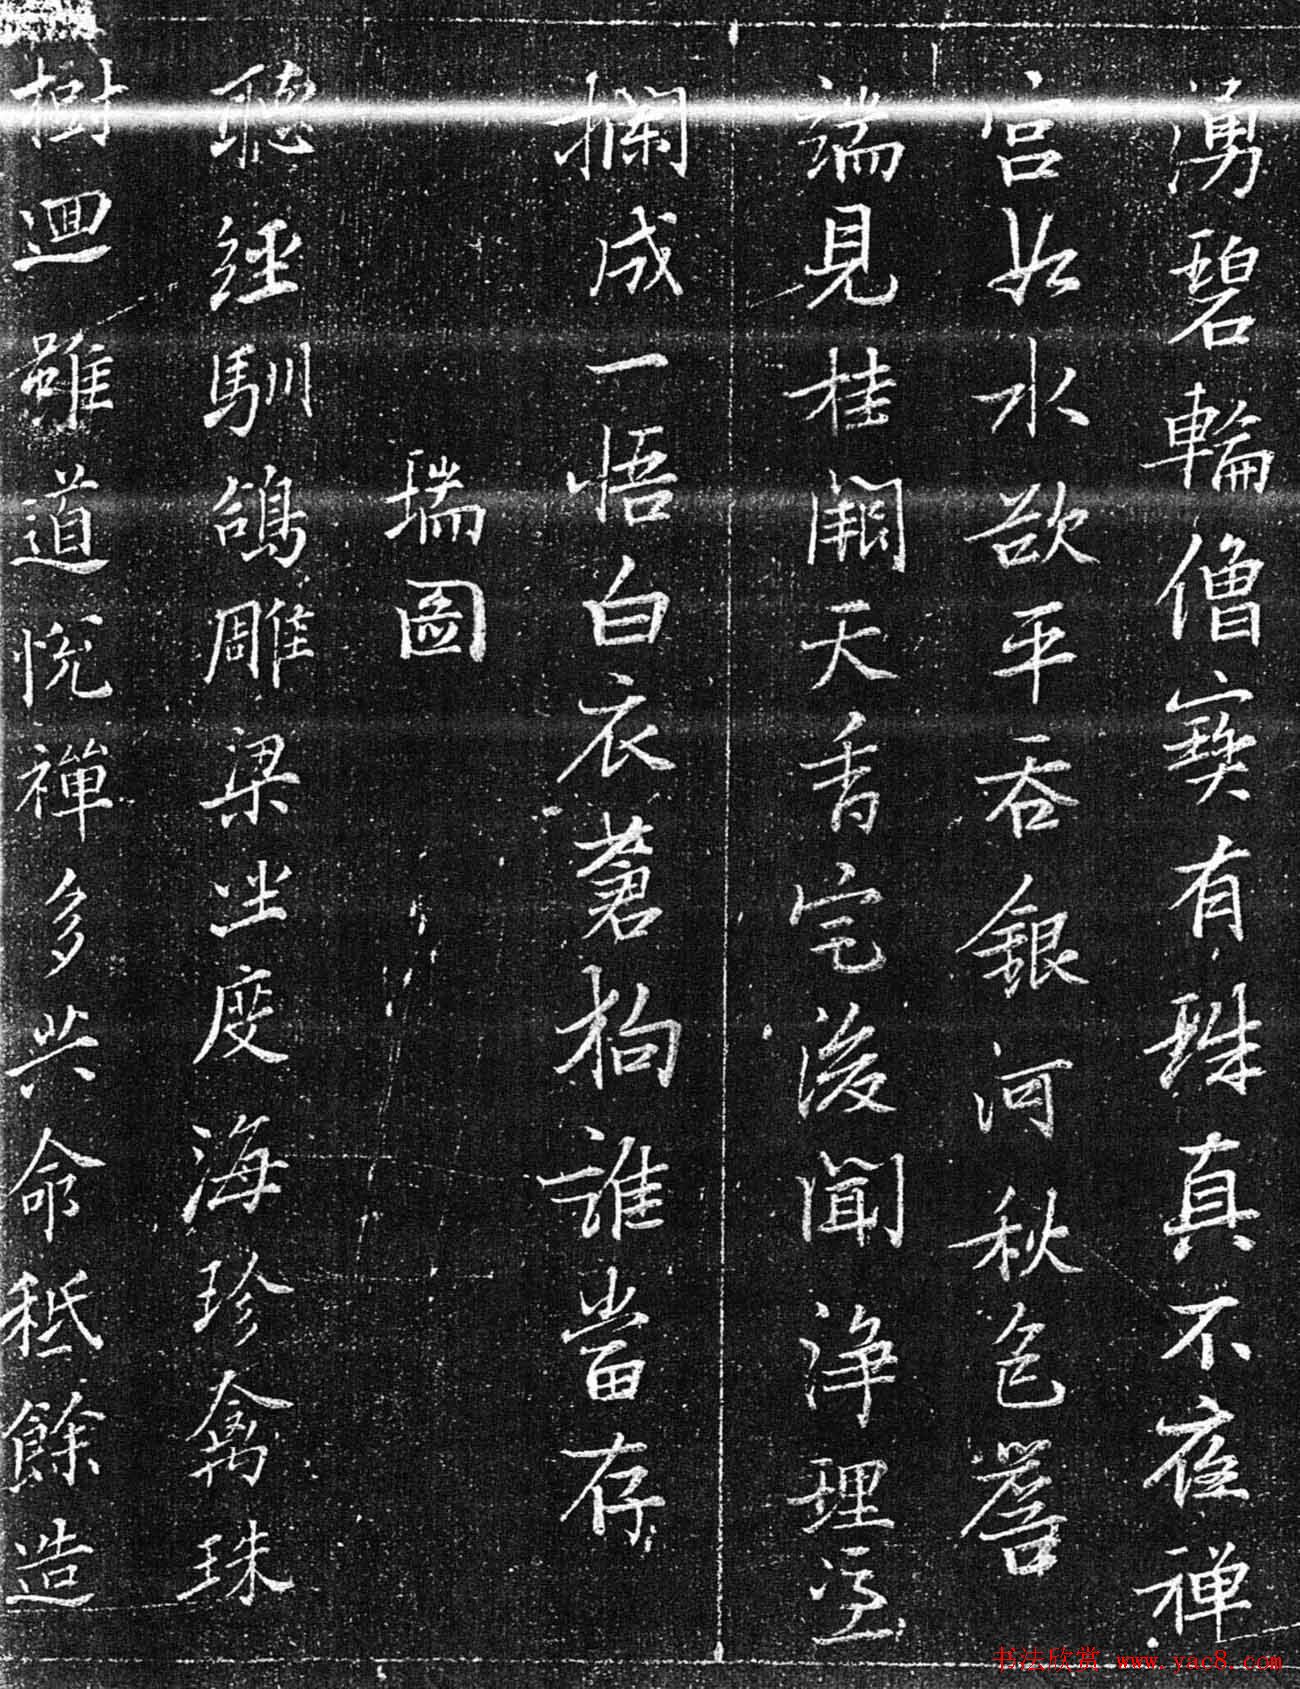 湧碧輪僧寶有珠真不夜禅
宮如水欲平吞銀河秋色簷
端見桂闕天香定後聞淨理空
擱成一悟白衣蒼狗誰當存
瑞圖
聽經馴鴿雕梁坐度海珍禽珠
樹迴雖道悅禪多共命秪餘造
书法欣赏 www.yac8.com